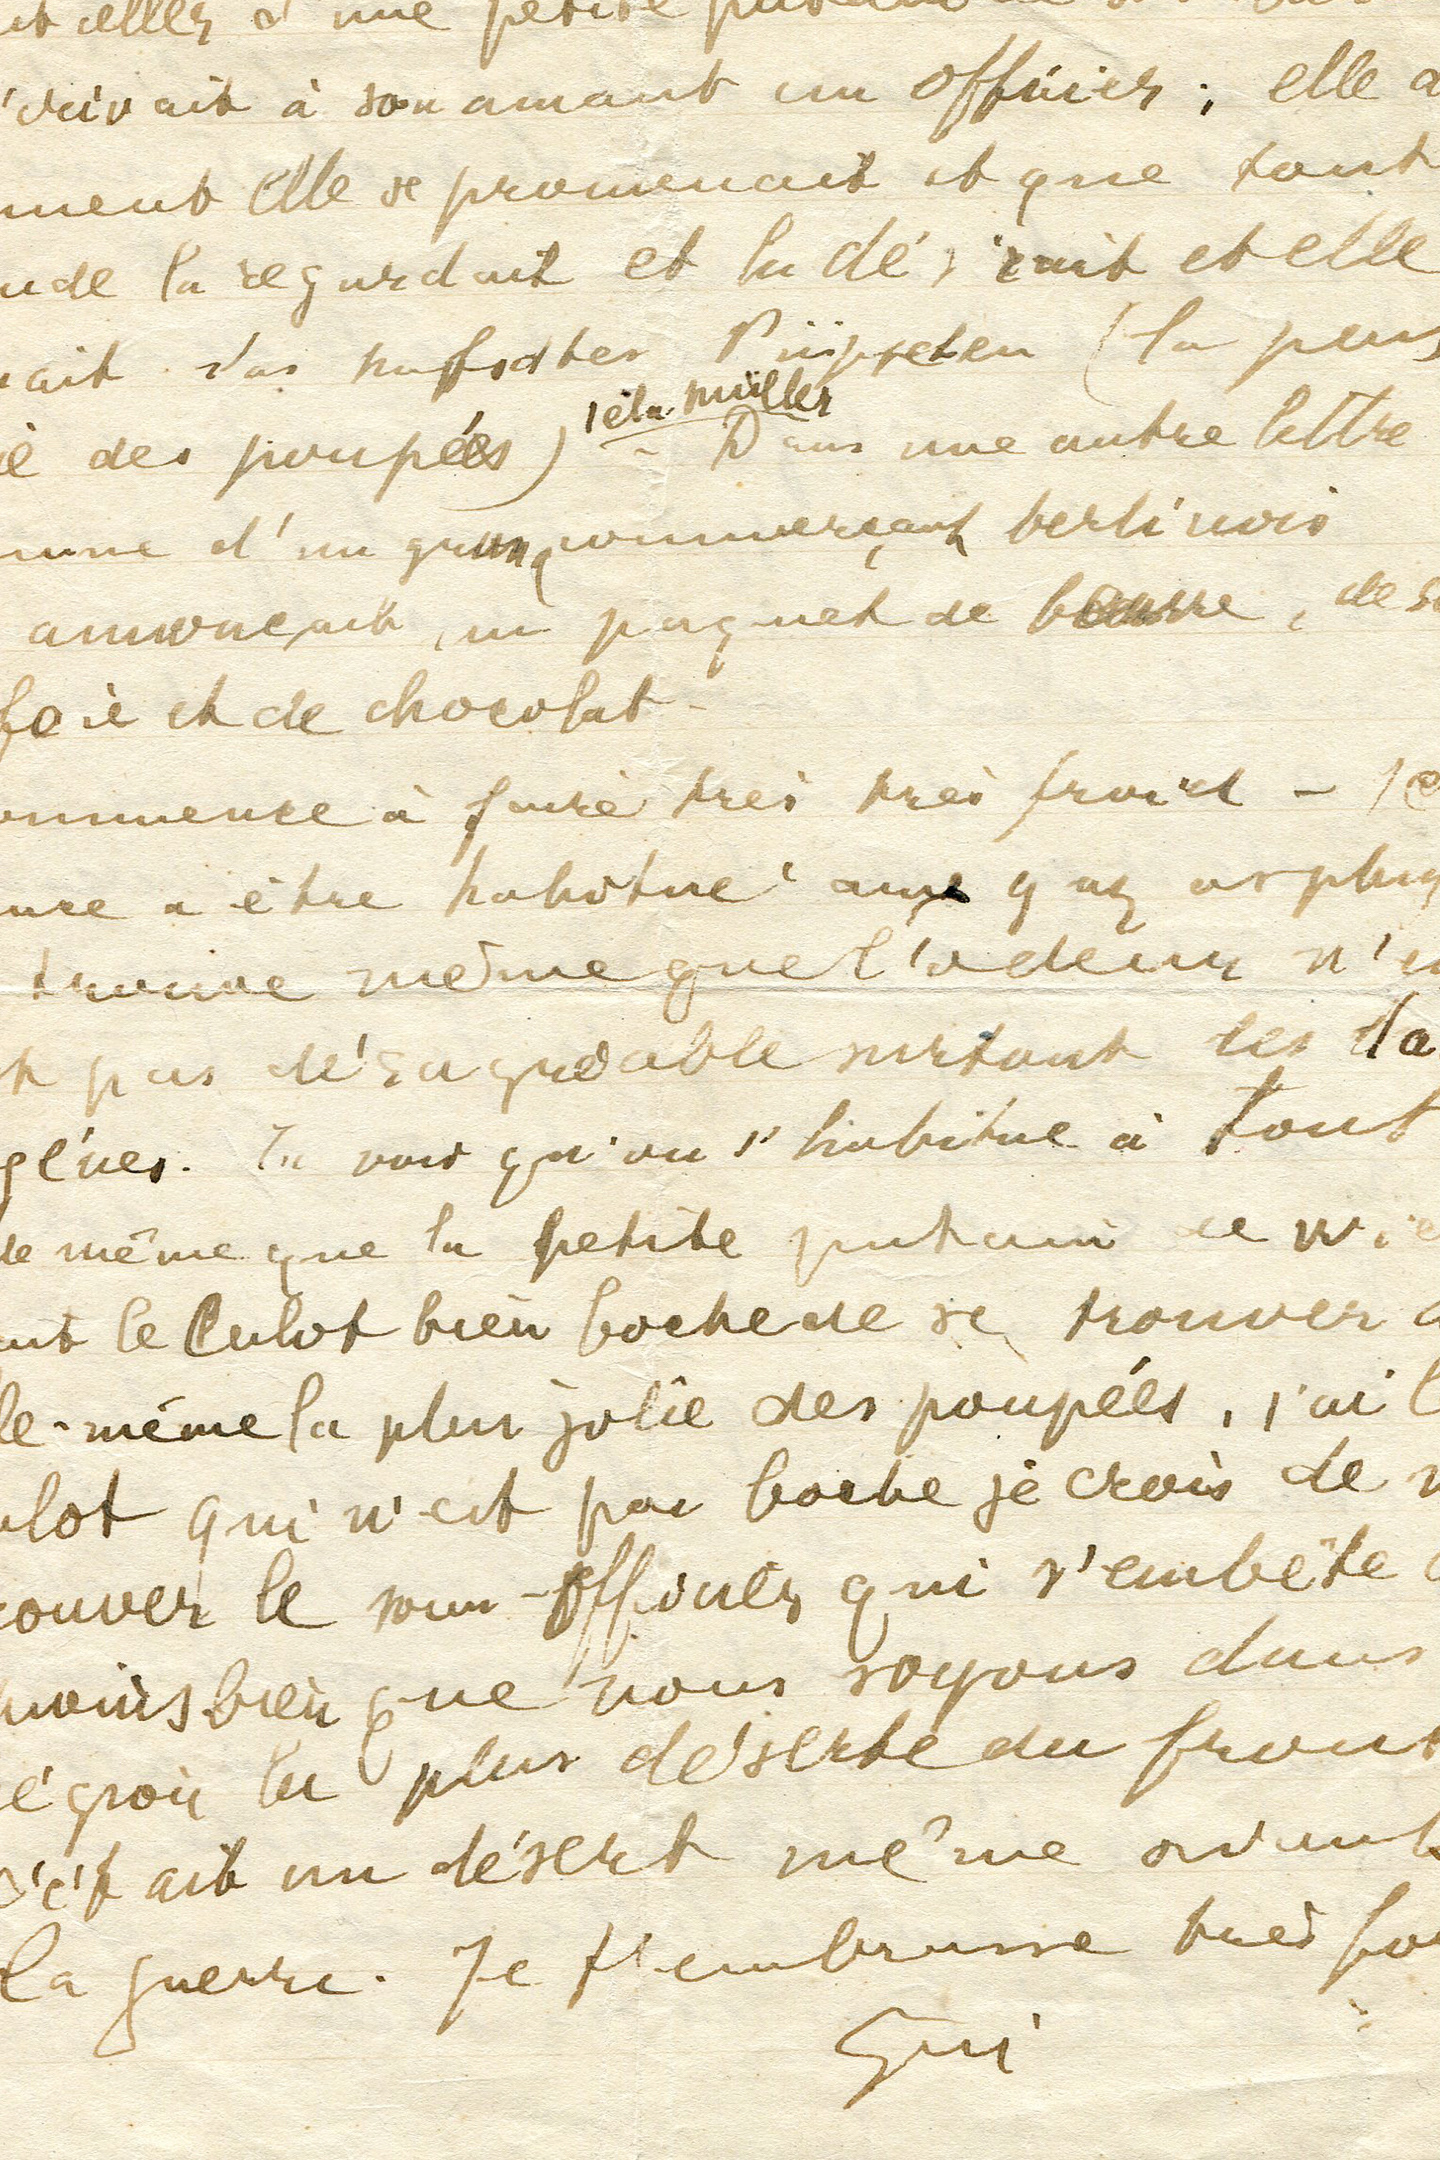 celles d'une petite putain de
écrivait à son amant un officier ; elle a
ment elle se promenait et que tout
nde la regardait et la désirait et elle
ait das Püppchen (la plus
ie des poupées) Iéla Müller - Dans une autre lettre
mme d'un grand commerçant berlinois
annonçait un paquet de beurre, de
foie et de chocolat -
ommence à faire très très froid - Je
ure a être habitué aux gaz asphy
trouve même que l'odeur n'e
t pas désagréable surtout les la
gènes. Tu vois qu'on s'habitue à tout
de même que la petite putain de Wie
ant le culot bien boche de se trouver
le-même la plus jolie des poupées, j'ai l
ulot qui n'est pas boche je crois de
rouver le sous-officier qui s'embête
moins bien que nous soyons dans
région la plus déserte du front
c'était un désert même avant
la guerre. Je t'embrasse très for
Gui